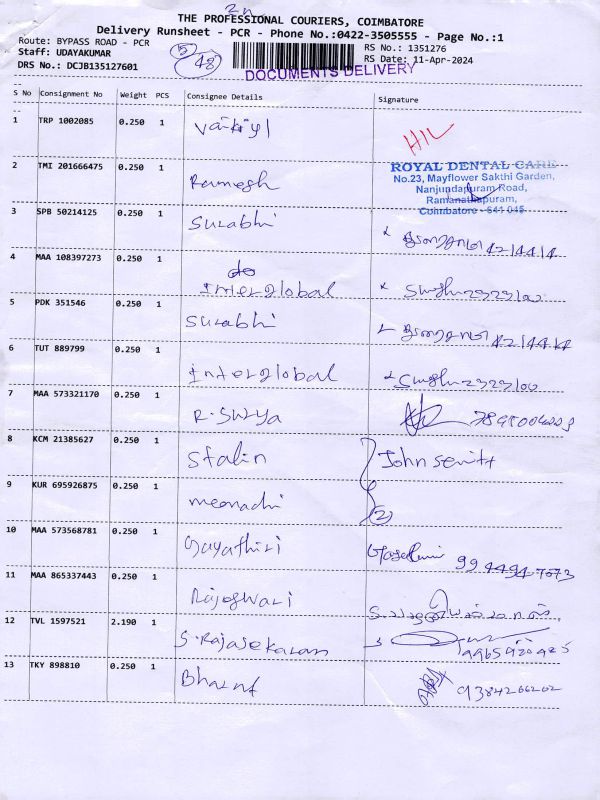 THE PROFESSIONAL COURIERS, COIMBATORE
Delivery Runsheet - PCR - Phone No.:0422-3505555 - Page No.:1
Route: BYPASS ROAD - PCR
Staff: UDAYAKUMAR
DRS No.: DCJB135127601
5
48
RS No.: 1351276
RS Date: 11-Apr-2024
DOCUMENTS DELIVERY
S No Consignment No Weight PCS Consignee Details Signature
1 TRP 1002085 0.250 1
ROYAL DENTAL CARE
No.23, Mayflower Sakthi Garden,
Nanjundapuram Road,
Ramanathapuram,
Coimbatore - 641 045
2 TMI 201666475 0.250 1 Ramesh
3 SPB 50214125 0.250 1 Surabhi
4 MAA 108397273 0.250 1 Interglobal
5 PDK 351546 0.250 1 Surabhi
6 TUT 889799 0.250 1 Interglobal
7 MAA 573321170 0.250 1 R. Surya
8 KCM 21385627 0.250 1 Stalin John
9 KUR 695926875 0.250 1 meenachi (2)
10 MAA 573568781 0.250 1 Gayathiri
11 MAA 865337443 0.250 1 Rajeswari
12 TVL 1597521 2.190 1 S. Rajasekaran
13 TKY 898810 0.250 1 Bharat